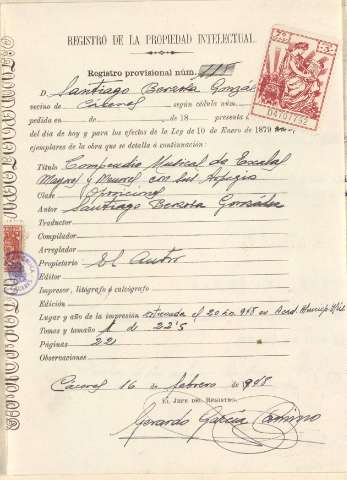 REGISTRO DE LA PROPIEDAD INTELECTUAL.
Registro provisional núm. 118
D. Santiago Berzosa Gonzál
vecino de Cáceres según cédula núm.
pedida en de de 18 presenta
del día de hoy y para los efectos de la Ley de 10 de Enero de 1879
ejemplares de la obra que se detalla á continuación:
Título Compendio Musical de Escalas
Mayores y Menores con sus Arpegios
Clase
Autor Santiago Berzosa González
Traductor
Compilador
Arreglador
Propietario El Autor
Editor
Impresor, litógrafo ó calcógrafo
Edición
Lugar y año de la impresión estrenada el 20 en 958 en Acad. Municip
Tomos y tamaño 1 de 22'5
Páginas 22
Observaciones
Cáceres 16 de febrero de 958
El Jefe del Registro,
Gerardo García Camino